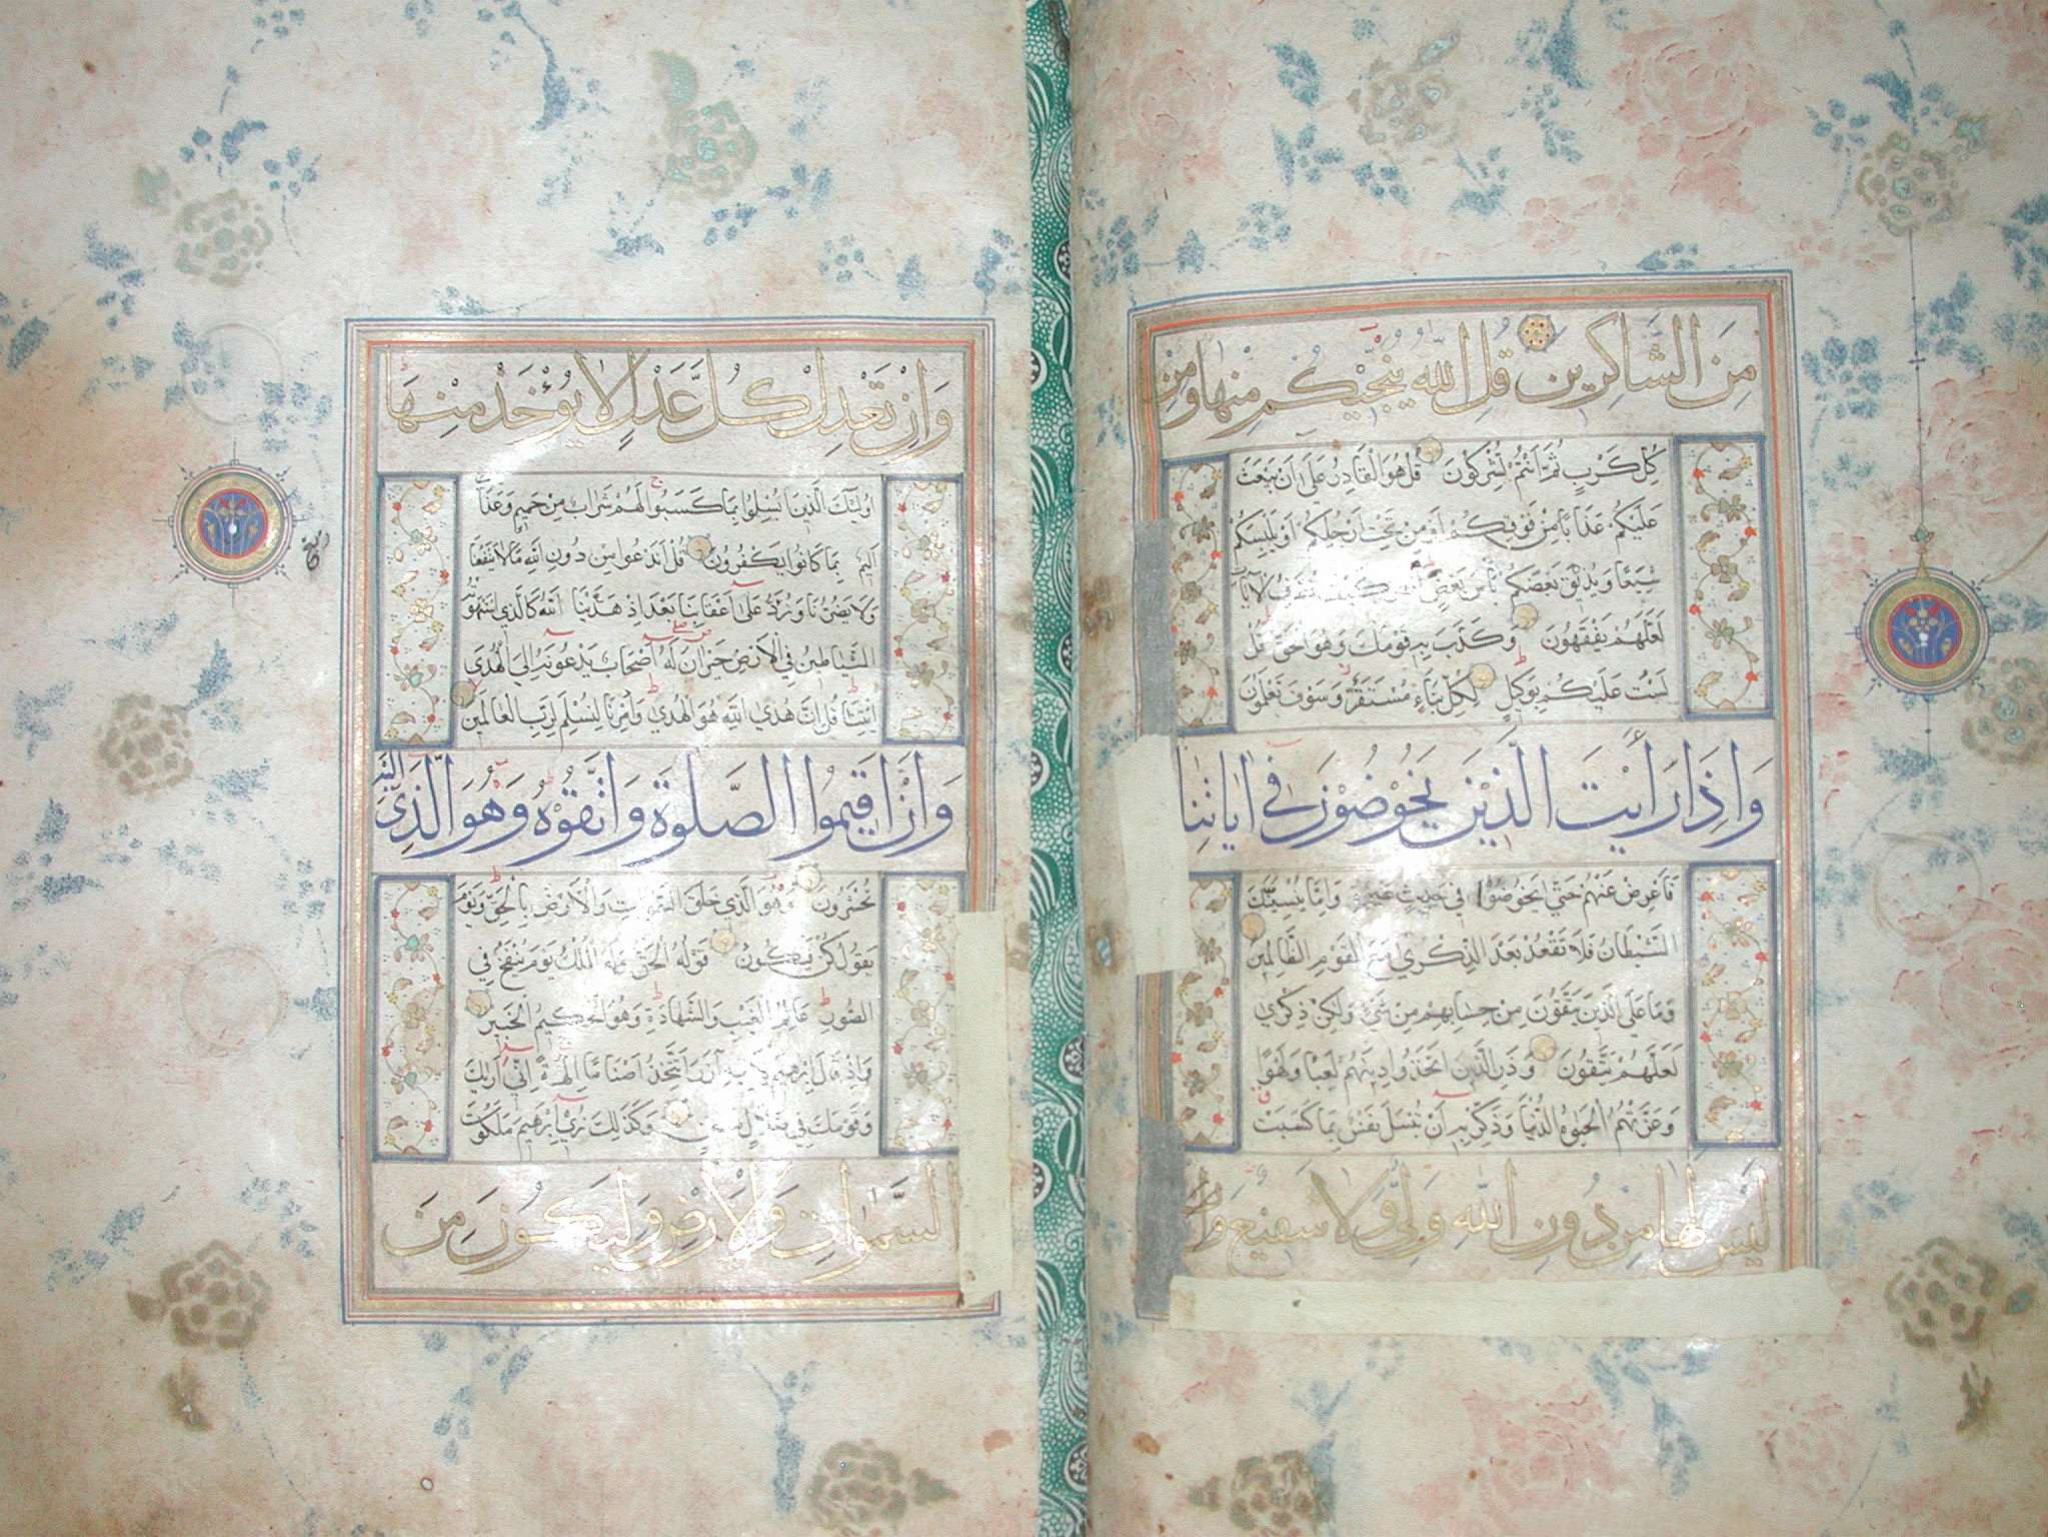 مِنَ الشَّاكِرِينَ قُلِ اللَّهُ يُنَجِّيكُمْ مِنْهَا وَمِنْ
كُلِّ كَرْبٍ ثُمَّ أَنْتُمْ تُشْرِكُونَ قُلْ هُوَ الْقَادِرُ عَلَى أَنْ يَبْعَثَ
عَلَيْكُمْ عَذَابًا مِنْ فَوْقِكُمْ أَوْ مِنْ تَحْتِ أَرْجُلِكُمْ أَوْ يَلْبِسَكُمْ
شِيَعًا وَيُذِيقَ بَعْضَكُمْ بَأْسَ بَعْضٍ كَيْفَ نُصَرِّفُ الْآيَاتِ
لَعَلَّهُمْ يَفْقَهُونَ وَكَذَّبَ بِهِ قَوْمُكَ وَهُوَ الْحَقُّ قُلْ
لَسْتُ عَلَيْكُمْ بِوَكِيلٍ لِكُلِّ نَبَإٍ مُسْتَقَرٌّ وَسَوْفَ تَعْلَمُونَ
وَإِذَا رَأَيْتَ الَّذِينَ يَخُوضُونَ فِي آيَاتِنَا
فَأَعْرِضْ عَنْهُمْ حَتَّى يَخُوضُوا فِي حَدِيثٍ غَيْرِهِ وَإِمَّا يُنْسِيَنَّكَ
الشَّيْطَانُ فَلَا تَقْعُدْ بَعْدَ الذِّكْرَى مَعَ الْقَوْمِ الظَّالِمِينَ
وَمَا عَلَى الَّذِينَ يَتَّقُونَ مِنْ حِسَابِهِمْ مِنْ شَيْءٍ وَلَكِنْ ذِكْرَى
لَعَلَّهُمْ يَتَّقُونَ وَذَرِ الَّذِينَ اتَّخَذُوا دِينَهُمْ لَعِبًا وَلَهْوًا
وَغَرَّتْهُمُ الْحَيَوةُ الدُّنْيَا وَذَكِّرْ بِهِ أَنْ تُبْسَلَ نَفْسٌ بِمَا كَسَبَتْ
لَيْسَ لَهَا مِنْ دُونِ اللَّهِ وَلِيٌّ وَلَا شَفِيعٌ
وَإِنْ تَعْدِلْ كُلَّ عَدْلٍ لَا يُؤْخَذْ مِنْهَا
أُولَئِكَ الَّذِينَ أُبْسِلُوا بِمَا كَسَبُوا لَهُمْ شَرَابٌ مِنْ حَمِيمٍ وَعَذَابٌ
أَلِيمٌ بِمَا كَانُوا يَكْفُرُونَ قُلْ أَنَدْعُو مِنْ دُونِ اللَّهِ مَا لَا يَنْفَعُنَا
وَلَا يَضُرُّنَا وَنُرَدُّ عَلَى أَعْقَابِنَا بَعْدَ إِذْ هَدَيْنَا اللَّهُ كَالَّذِي اسْتَهْوَتْهُ
الشَّيَاطِينُ فِي الْأَرْضِ حَيْرَانَ لَهُ أَصْحَابٌ يَدْعُونَهُ إِلَى الْهُدَى
ائْتِنَا قُلْ إِنَّ هُدَى اللَّهِ هُوَ الْهُدَى وَأُمِرْنَا لِنُسْلِمَ لِرَبِّ الْعَالَمِينَ
وَأَنْ أَقِيمُوا الصَّلَوةَ وَاتَّقُوهُ وَهُوَ الَّذِي إِلَيْهِ
تُحْشَرُونَ وَهُوَ الَّذِي خَلَقَ السَّمَوَاتِ وَالْأَرْضَ بِالْحَقِّ وَيَوْمَ
يَقُولُ كُنْ فَيَكُونُ قَوْلُهُ الْحَقُّ وَلَهُ الْمُلْكُ يَوْمَ يُنْفَخُ فِي
الصُّورِ عَالِمُ الْغَيْبِ وَالشَّهَادَةِ وَهُوَ الْحَكِيمُ الْخَبِيرُ
وَإِذْ قَالَ إِبْرَهِيمُ لِأَبِيهِ آزَرَ أَتَتَّخِذُ أَصْنَامًا آلِهَةً إِنِّي أَرَاكَ
وَقَوْمَكَ فِي ضَلَالٍ مُبِينٍ وَكَذَلِكَ نُرِي إِبْرَهِيمَ مَلَكُوتَ
السَّمَوَاتِ وَالْأَرْضِ وَلِيَكُونَ مِنَ